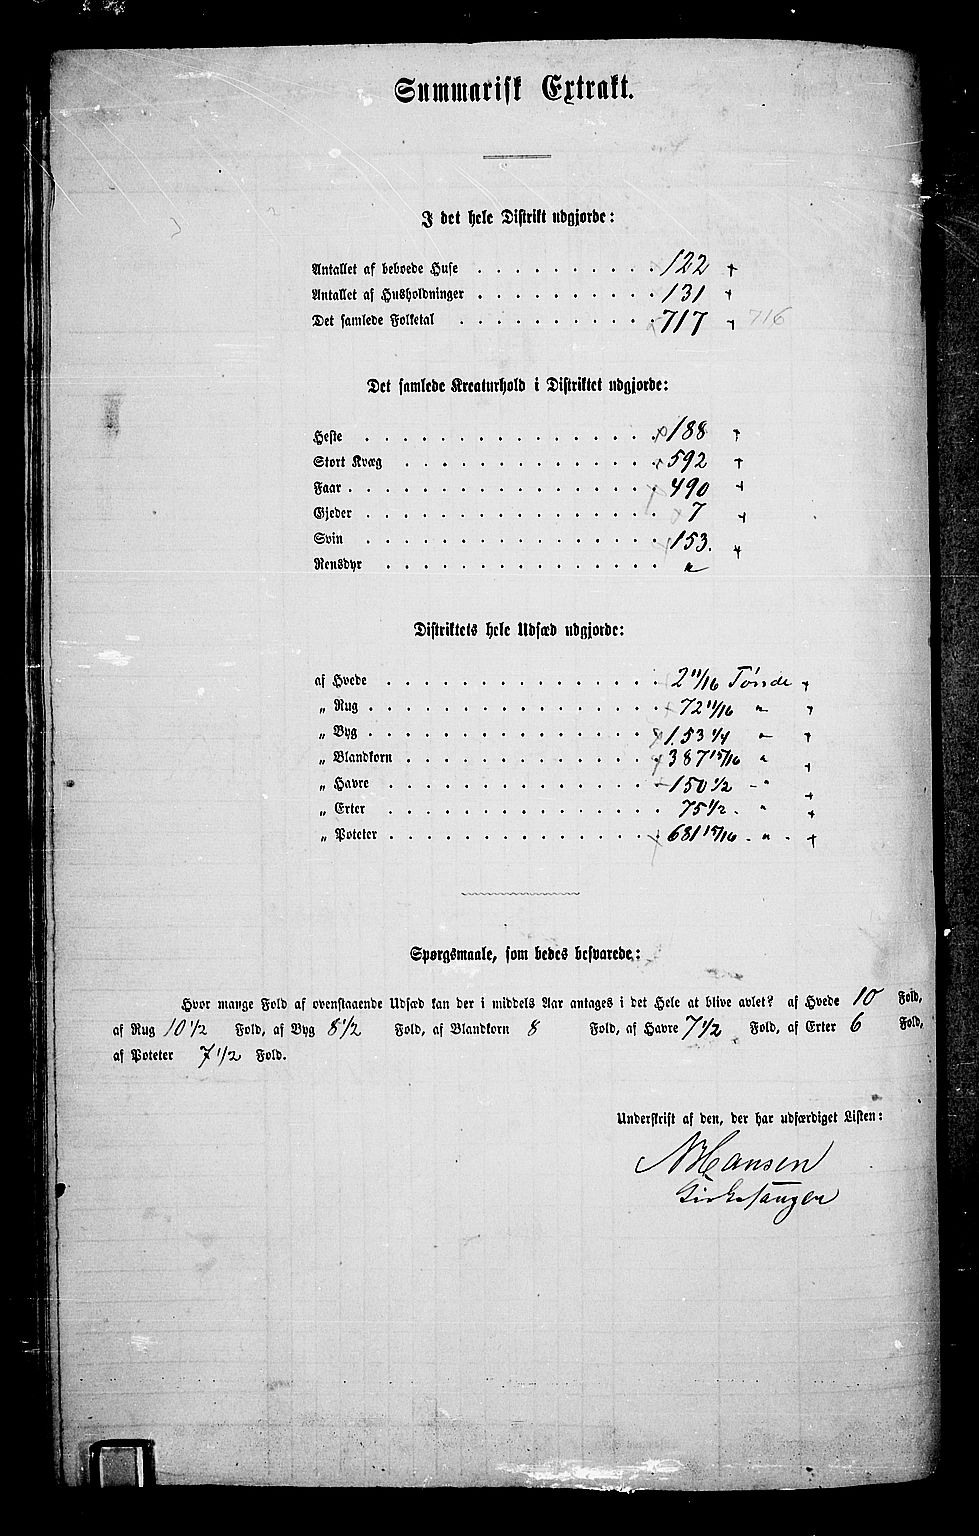 Summarisk Extrakt.
I det hele Distrikt udgjorde:
Antallet af beboede Huse . . . . . . . . . . 122 +
Antallet af Husholdninger . . . . . . . . . . 131 +
Det samlede Folketal . . . . . . . . . . . 717 716
Det samlede Kreaturhold i Distriktet udgjorde:
Heste . . . . . . . . . . . . . . . . 188 +
Stort Kvæg . . . . . . . . . . . . . . 592 +
Faar . . . . . . . . . . . . . . . . . 490 +
Gjeder . . . . . . . . . . . . . . . . 7 +
Svin . . . . . . . . . . . . . . . . 153. +
Rensdyr . . . . . . . . . . . . . . . „
Distriktets hele Udsæd udgjorde:
af Hvede . . . . . . . . . . . . . . . 2 11/16 Tønde +
„ Rug . . . . . . . . . . . . . . . . 72 11/16 „
„ Byg . . . . . . . . . . . . . . . . 153 1/4 „ +
„ Blandkorn . . . . . . . . . . . . . 387 15/16 „ +
„ Havre . . . . . . . . . . . . . . . 150 1/2 - „ +
„ Erter . . . . . . . . . . . . . . . 75 1/2 . „ +
„ Poteter . . . . . . . . . . . . . . 681 15/16 - „ - +
Spørgsmaale, som bedes besvarede:
Hvor mange Fold af ovenstaaende Udsæd kan der i middels Aar antages i det Hele at blive avlet? af Hvede 10 Fold,
af Rug 10 1/2 Fold, af Byg 8 1/2 Fold, af Blandkorn 8 Fold, af Havre 7 1/2 Fold, af Erter 6 Fold,
af Poteter 7 1/2 Fold.
Underskrift af den, der har udfærdiget Listen:
N Hansen
Kirkesanger